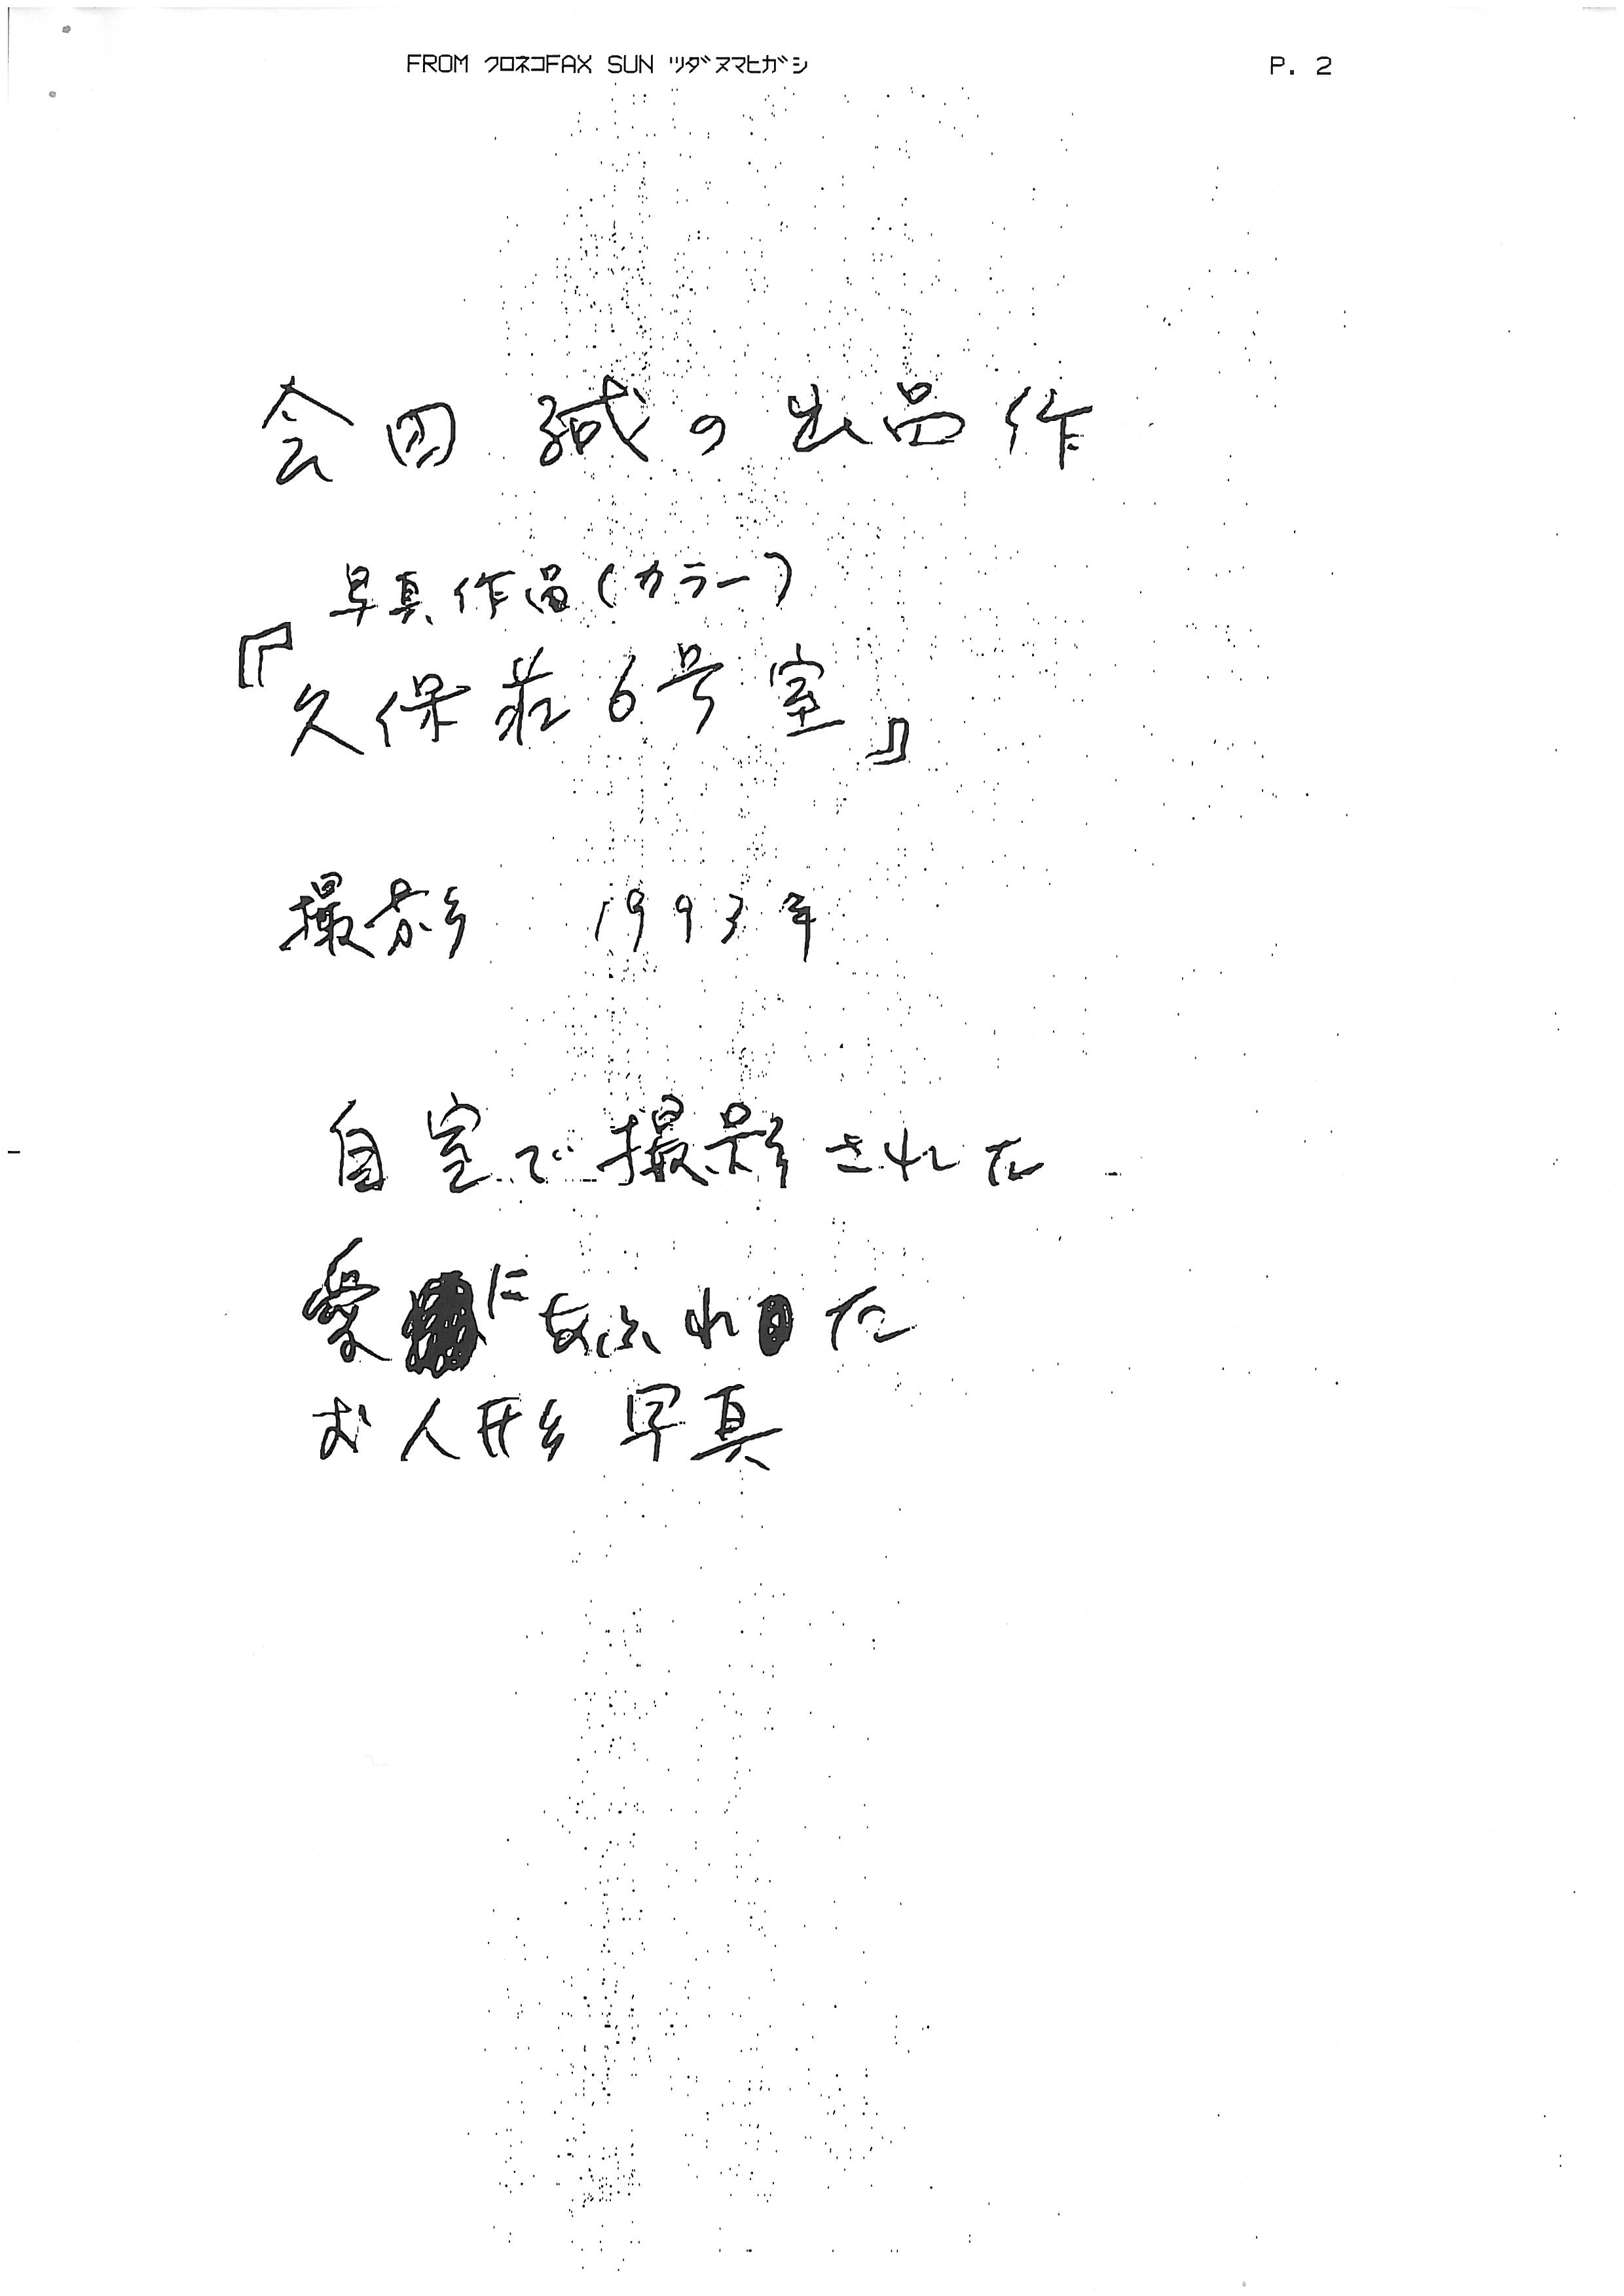 FROM クロネコFAX SUN ツダヌマヒガシ P. 2
会田 誠の出品作
写真作品(カラー)
『久保荘6号室』
撮影 1993年
自室で撮影された
愛にあふれた
お人形写真